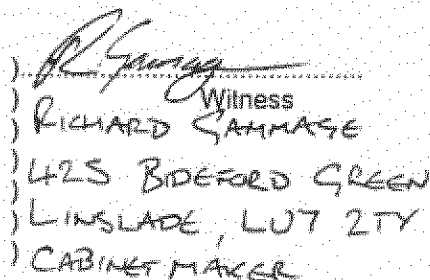 ) R. Gammage
) Witness
) RICHARD GAMMAGE
) 425 BIDEFORD GREEN
) LINSLADE, LU7 2TY
) CABINET MAKER